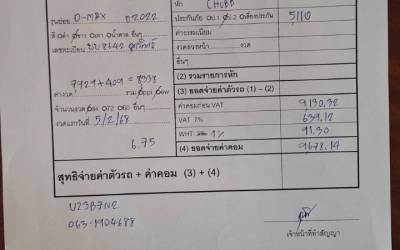 หัก CHUBB
รุ่นย่อย D-MAX ปี 2022
ประกันภัย ป.1 ป.2 เลือกประกัน 5,110
สี ดำ ขาว เทา น้ำตาล อื่นๆ
ค่าธรรมเนียม
เลขทะเบียน 8642
งวดล่วงหน้า งวด
อื่นๆ
(2) รวมรายการหัก
7929 + 409 = 8338
(3) ยอดจ่ายค่าตัวรถ (1) - (2)
ค่างวด รวม
ค่าคอมก่อน VAT 9130.32
จำนวนงวด 72 60 อื่นๆ
VAT 7% 639.12
งวดแรกวันที่ 5/2/68
WHT 3% 1% 91.30
6.75
(4) ยอดจ่ายค่าคอม 9678.14
สุทธิจ่ายค่าตัวรถ + ค่าคอม (3) + (4)
U23B7N2
063-1904688
เจ้าหน้าที่ทำสัญญา